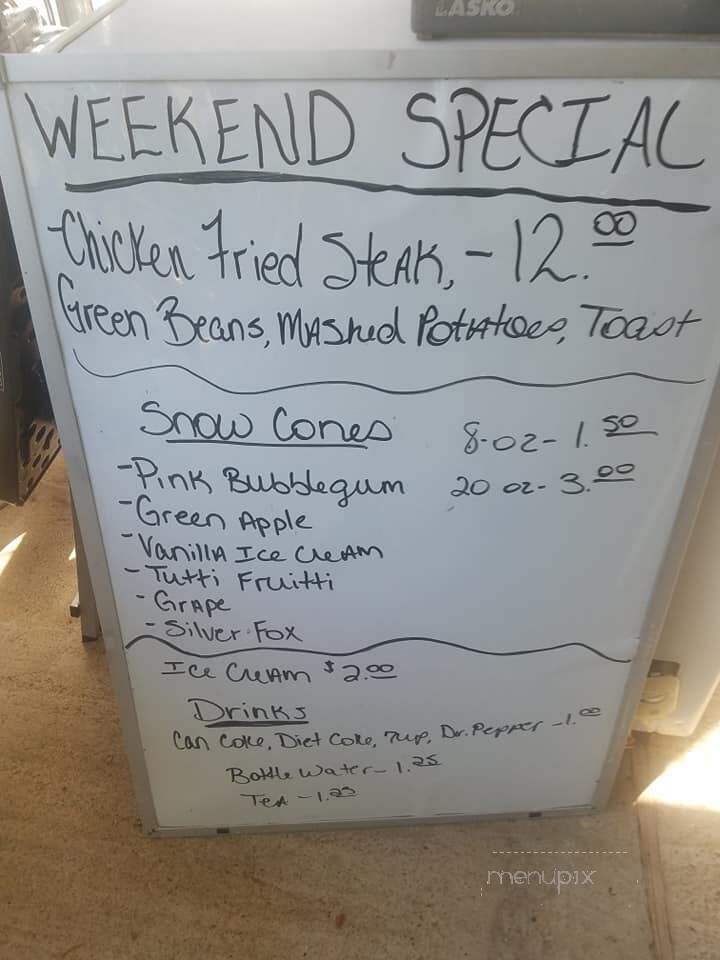 LASKO
WEEKEND SPECIAL
-Chicken Fried Steak, - 12.00
Green Beans, Mashed Potatoes, Toast
Snow Cones 8-oz- 1.50
-Pink Bubblegum 20 oz- 3.00
-Green Apple
-Vanilla Ice Cream
-Tutti Fruitti
-Grape
-Silver Fox
Ice Cream $2.00
Drinks
Can Coke, Diet Coke, 7up, Dr. Pepper -1.00
Bottle Water- 1.25
Tea -1.25
menupix